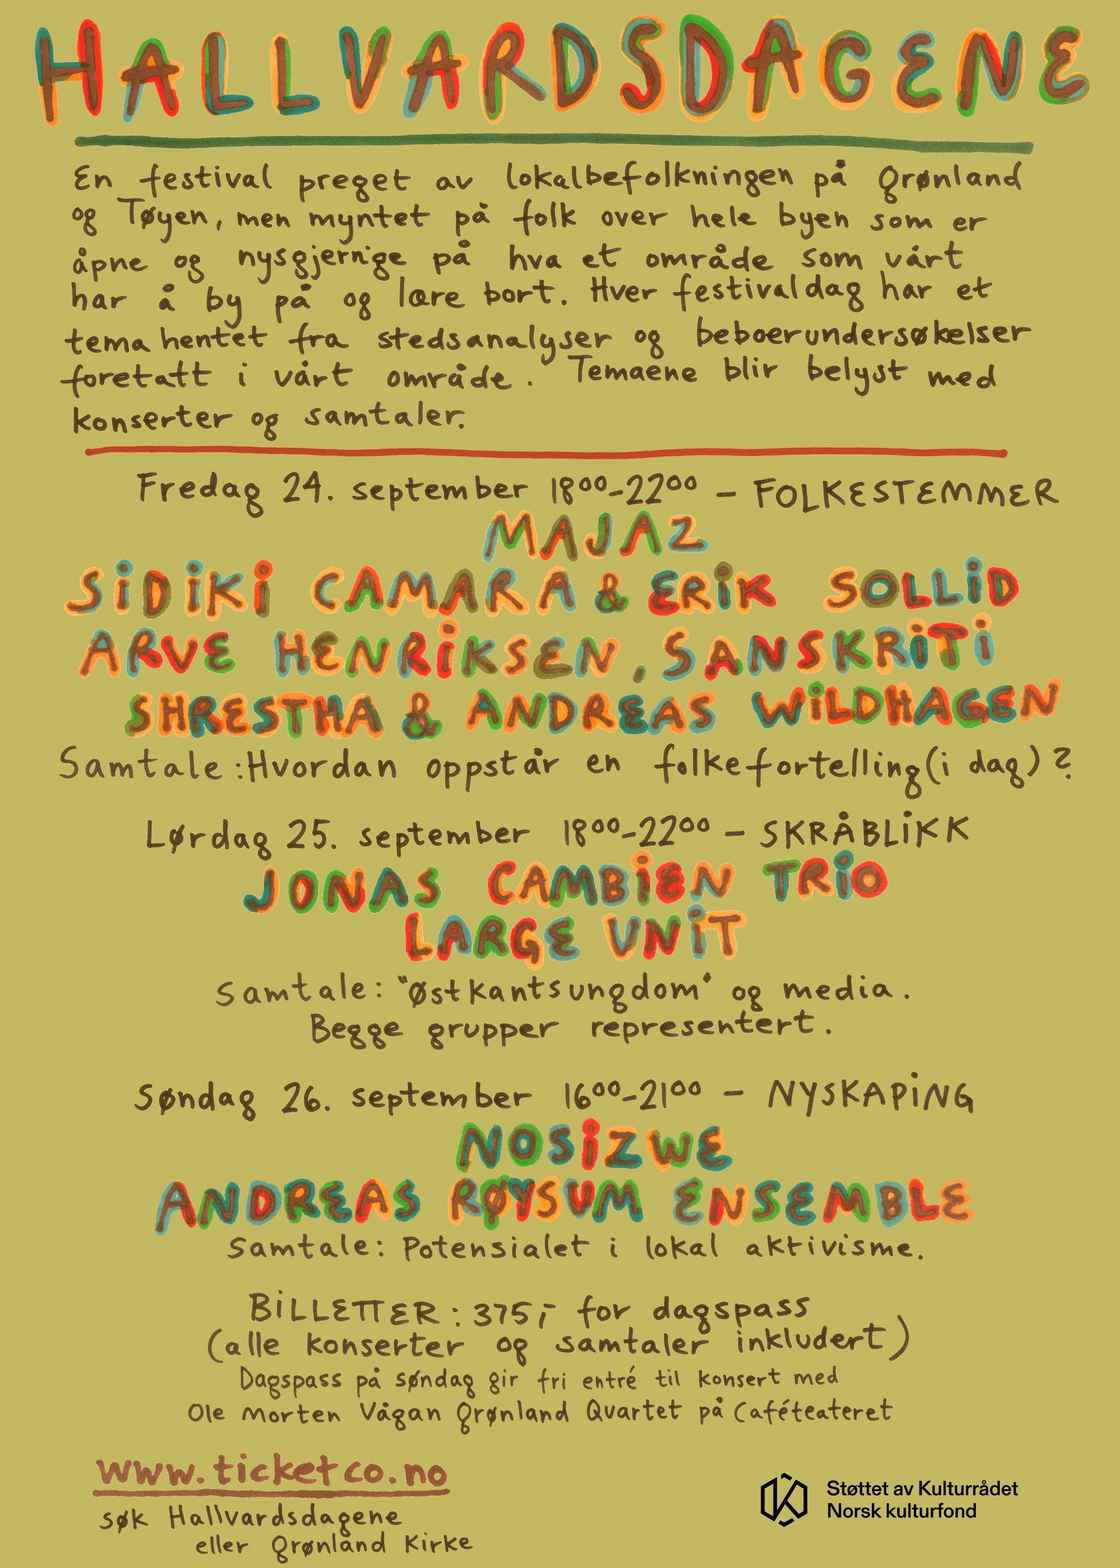 HALLVARDSDAGENE
En festival preget av lokalbefolkningen på Grønland
og Tøyen, men myntet på folk over hele byen som er
åpne og nysgjerrige på hva et område som vårt
har å by på og lære bort. Hver festivaldag har et
tema hentet fra stedsanalyser og beboerundersøkelser
foretatt i vårt område. Temaene blir belyst med
konserter og samtaler.
Fredag 24. september 18⁰⁰-22⁰⁰ – FOLKESTEMMER
MAJAZ
SIDIKI CAMARA & ERIK SOLLID
ARVE HENRIKSEN, SANSKRITI
SHRESTHA & ANDREAS WILDHAGEN
Samtale: Hvordan oppstår en folkefortelling (i dag)?
Lørdag 25. september 18⁰⁰-22⁰⁰ – SKRÅBLIKK
JONAS CAMBIEN TRIO
LARGE UNIT
Samtale: "Østkantsungdom" og media.
Begge grupper representert.
Søndag 26. september 16⁰⁰-21⁰⁰ – NYSKAPING
NOSIZWE
ANDREAS RØYSUM ENSEMBLE
Samtale: Potensialet i lokal aktivisme.
BILLETTER: 375,- for dagspass
(alle konserter og samtaler inkludert)
Dagspass på søndag gir fri entré til konsert med
Ole Morten Vågan Grønland Quartet på Caféteateret
www.ticketco.no
søk Hallvardsdagene
eller Grønland Kirke
Støttet av Kulturrådet
Norsk kulturfond